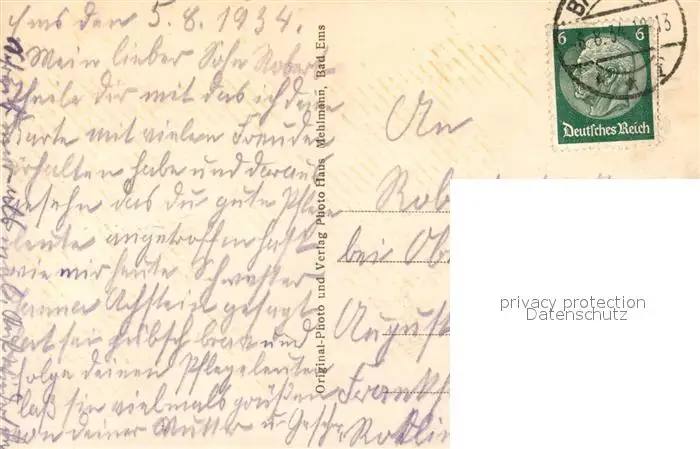 Ems den 5.8.1934.
Mein lieber Sohn Robert
theile dir mit das ich deine
Karte mit vielen Freuden
erhalten habe und daraus
gesehn das du gute Pflege
leute angetroffen hast
wie mir heute Schwester
Anna gesagt
hat sei hübsch brav und
folge deinen Pflegeleuten
laß sie vielmals grüßen
von deiner Mutter u Geschw
Original-Photo und Verlag Photo Haus Mehlmann, Bad Ems
6 6
Deutsches Reich
An
Rob
bei Ob
August
Frankf
privacy protection
Datenschutz